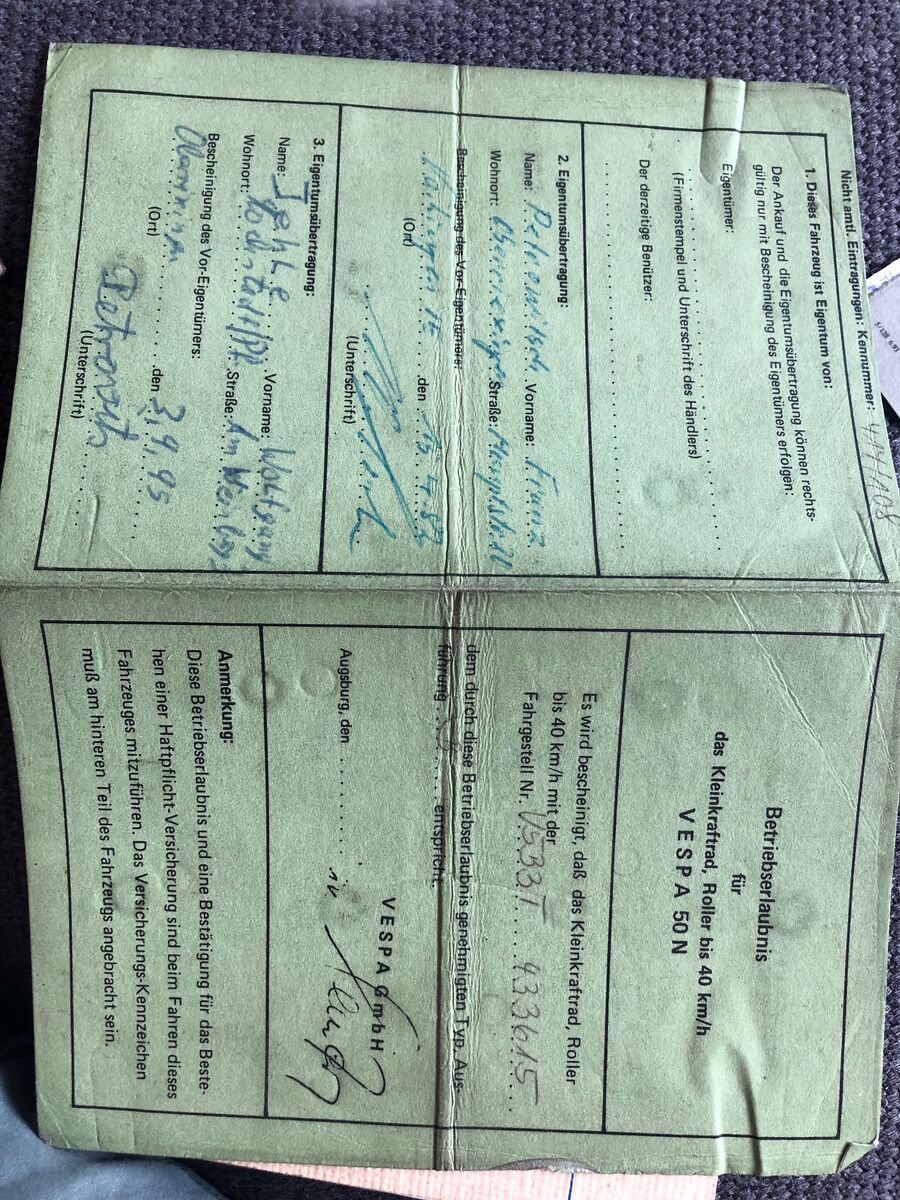 Nicht amtl. Eintragungen: Kennummer: 414/108
1. Dieses Fahrzeug ist Eigentum von:
Der Ankauf und die Eigentumsübertragung können rechts-
gültig nur mit Bescheinigung des Eigentümers erfolgen:
Eigentümer:
(Firmenstempel und Unterschrift des Händlers)
Der derzeitige Benützer:
2. Eigentumsübertragung:
Name: Vorname: Franz
Wohnort: Straße:
Bescheinigung des Vor-Eigentümers:
den
(Ort)
(Unterschrift)
3. Eigentumsübertragung:
Name: Vorname: Wolfgang
Wohnort: Straße: Am
Bescheinigung des Vor-Eigentümers:
den 3.9.95
(Ort)
(Unterschrift)
Betriebserlaubnis
für
das Kleinkraftrad, Roller bis 40 km/h
VESPA 50 N
Es wird bescheinigt, daß das Kleinkraftrad, Roller
bis 40 km/h mit der
Fahrgestell Nr. V5B3T 433615
dem durch diese Betriebserlaubnis genehmigten Typ, Aus-
führung entspricht.
VESPA GmbH
Augsburg, den
Anmerkung:
Diese Betriebserlaubnis und eine Bestätigung für das Beste-
hen einer Haftpflicht-Versicherung sind beim Fahren dieses
Fahrzeuges mitzuführen. Das Versicherungs-Kennzeichen
muß am hinteren Teil des Fahrzeugs angebracht sein.